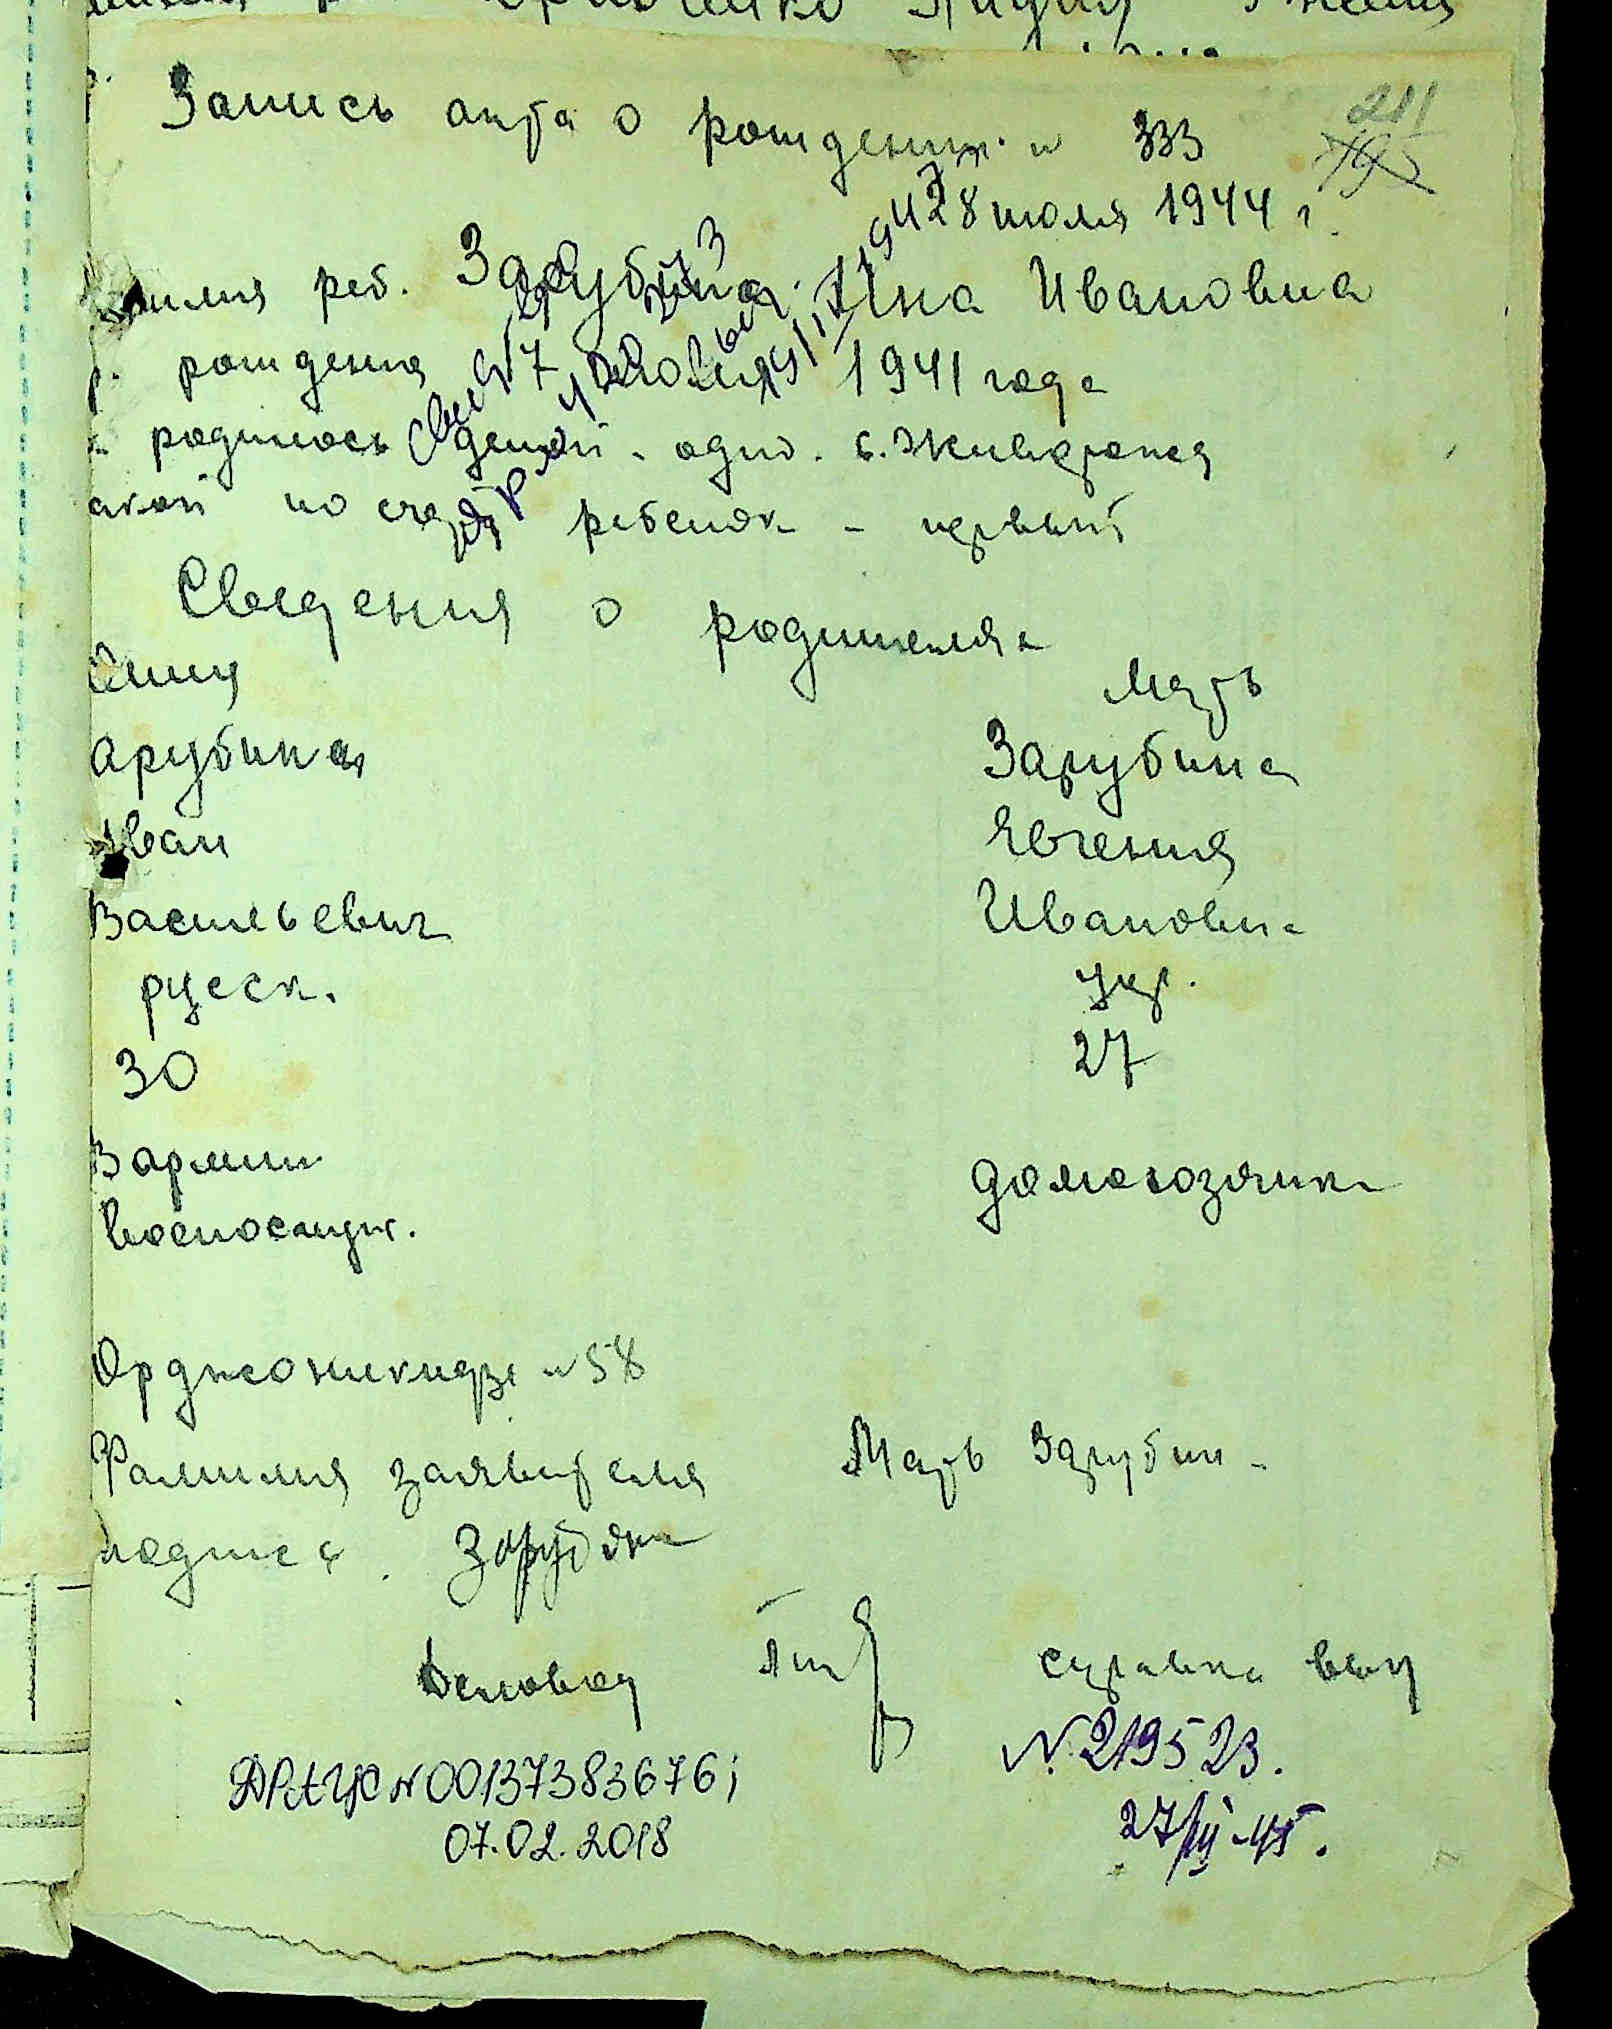 Запись акта о рождении. № 333
211
195
28 июля 1944 г.
реб. Зарубина Инна Ивановна
рождения 7 1941 года
родилось детей - одно. живорожд
по счету ребенок - первый
Сведения о родителях
Отец
Мать
арубин
Зарубина
Иван
Евгения
Васильевич
Ивановна
русск.
Укр.
30
27
В армии
домохозяйка
военнослуж.
Орджоникидзе № 58
Фамилия заявителя Мать Зарубин
подпись. Зарубина
справка выд
№ 219523.
ДРАЦС № 00137383676;
07.02.2018